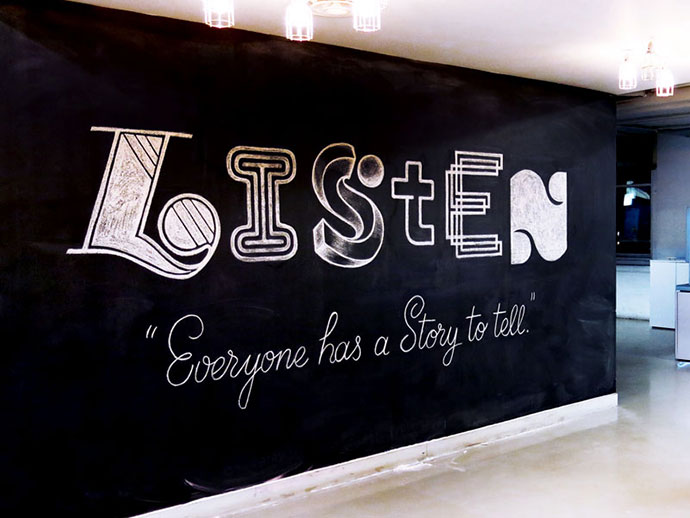 LIStEN
"Everyone has a Story to tell."